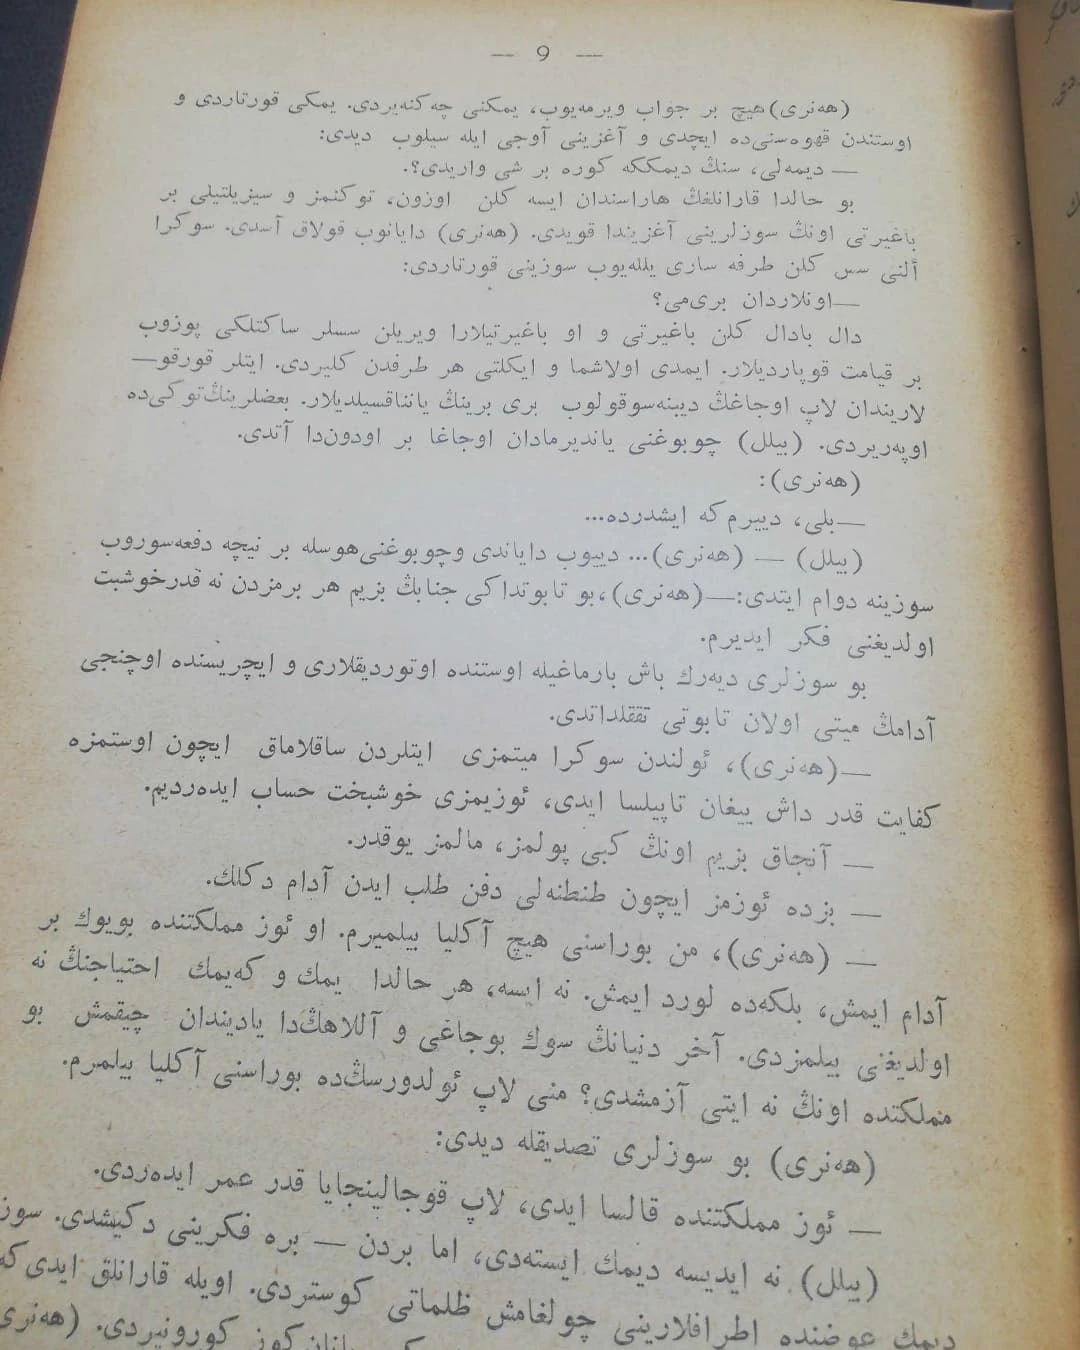 — 9 —
(هەنری) هیچ بر جواب ویرمەیوب، یمکنی چەکنەیردی. یمکی قورتاردی و
اوستندن قهوەسنی‌دە ایچدی و آغزینی آوجی ایلە سیلوب دیدی:
— دیمەلی، سنڭ دیمککە کورە بر شی واریدی؟.
بو حالدا قارانلغڭ هاراسندان ایسە کلن اوزون، توکنمز و سیزیلتیلی بر
باغیرتی اونڭ سوزلرینی آغزیندا قویدی. (هەنری) دایانوب قولاق آسدی. سوکرا
ألنی سس کلن طرفە ساری یللەیوب سوزینی قورتاردی:
— اونلاردان بری‌می؟
دال بادال کلن باغیرتی و او باغیرتیلارا ویریلن سسلر ساکتلکی پوزوب
بر قیامت قوپاردیلار. ایمدی اولاشما و ایکلتی هر طرفدن کلیردی. ایتلر قورقو—
لاریندان لاپ اوجاغڭ دیبنەسوقولوب بری برینڭ یانناقسیلدیلار. بعضلرینڭ‌توکی‌دە
اوپەریردی. (بیلل) چوبوغنی یاندیرمادان اوجاغا بر اودون‌دا آتدی.
(هەنری):
— بلی، دییرم کە ایشدردە...
(بیلل) — (هەنری)... دییوب دایاندی وچوبوغنی‌هوسلە بر نیچە دفعەسوروب
سوزینە دوام ایتدی:— (هەنری)، بو تابوتداکی جنابڭ بزیم هر برمزدن نە قدرخوشبت
اولدیغنی فکر ایدیرم.
بو سوزلری دیەرك باش بارماغیلە اوستندە اوتوردیقلاری و ایچریسندە اوچنجی
آدامڭ میتی اولان تابوتی تققلداتدی.
— (هەنری)، ئولندن سوکرا میتمزی ایتلردن ساقلاماق ایچون اوستمزە
کفایت قدر داش ییغان تاپیلسا ایدی، ئوزیمزی خوشبخت حساب ایدەردیم.
— آنجاق بزیم اونڭ کبی پولمز، مالمز یوقدر.
— بزدە ئوزمز ایچون طنطنەلی دفن طلب ایدن آدام دکلك.
— (هەنری)، من بوراسنی هیچ آکلیا بیلمیرم. او ئوز مملکتندە بویوك بر
آدام ایمش، بلکەدە لورد ایمش. نە ایسە، هر حالدا یمك و کەیمك احتیاجنڭ نە
اولدیغنی بیلمزدی. آخر دنیانڭ سوك بوجاغی و آللاهڭ‌دا یادیندان چیقمش بو
مملکتدە اونڭ نە ایتی آزمشدی؟ منی لاپ ئولدورسڭ‌دە بوراسنی آکلیا بیلمرم.
(هەنری) بو سوزلری تصدیقلە دیدی:
— ئوز مملکتندە قالسا ایدی، لاپ قوجالینجایا قدر عمر ایدەردی.
(بیلل) نە ایدیسە دیمك ایستەدی، اما بردن — برە فکرینی دکیشدی. سوز
دیمك عوضندە اطرافلارینی چولغامش ظلماتی کوستردی. اویلە قارانلق ایدی‌کە
کوز کورونیردی. (هەنری